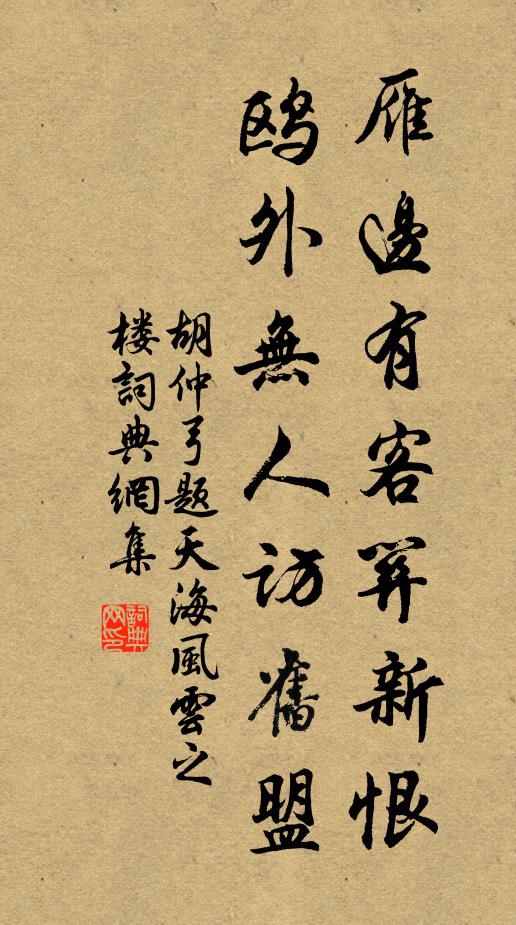 雁邊有客新恨
鷗外無人訪舊盟
胡仲弓题天海風雲之
楼詞典網集
詞典
网印